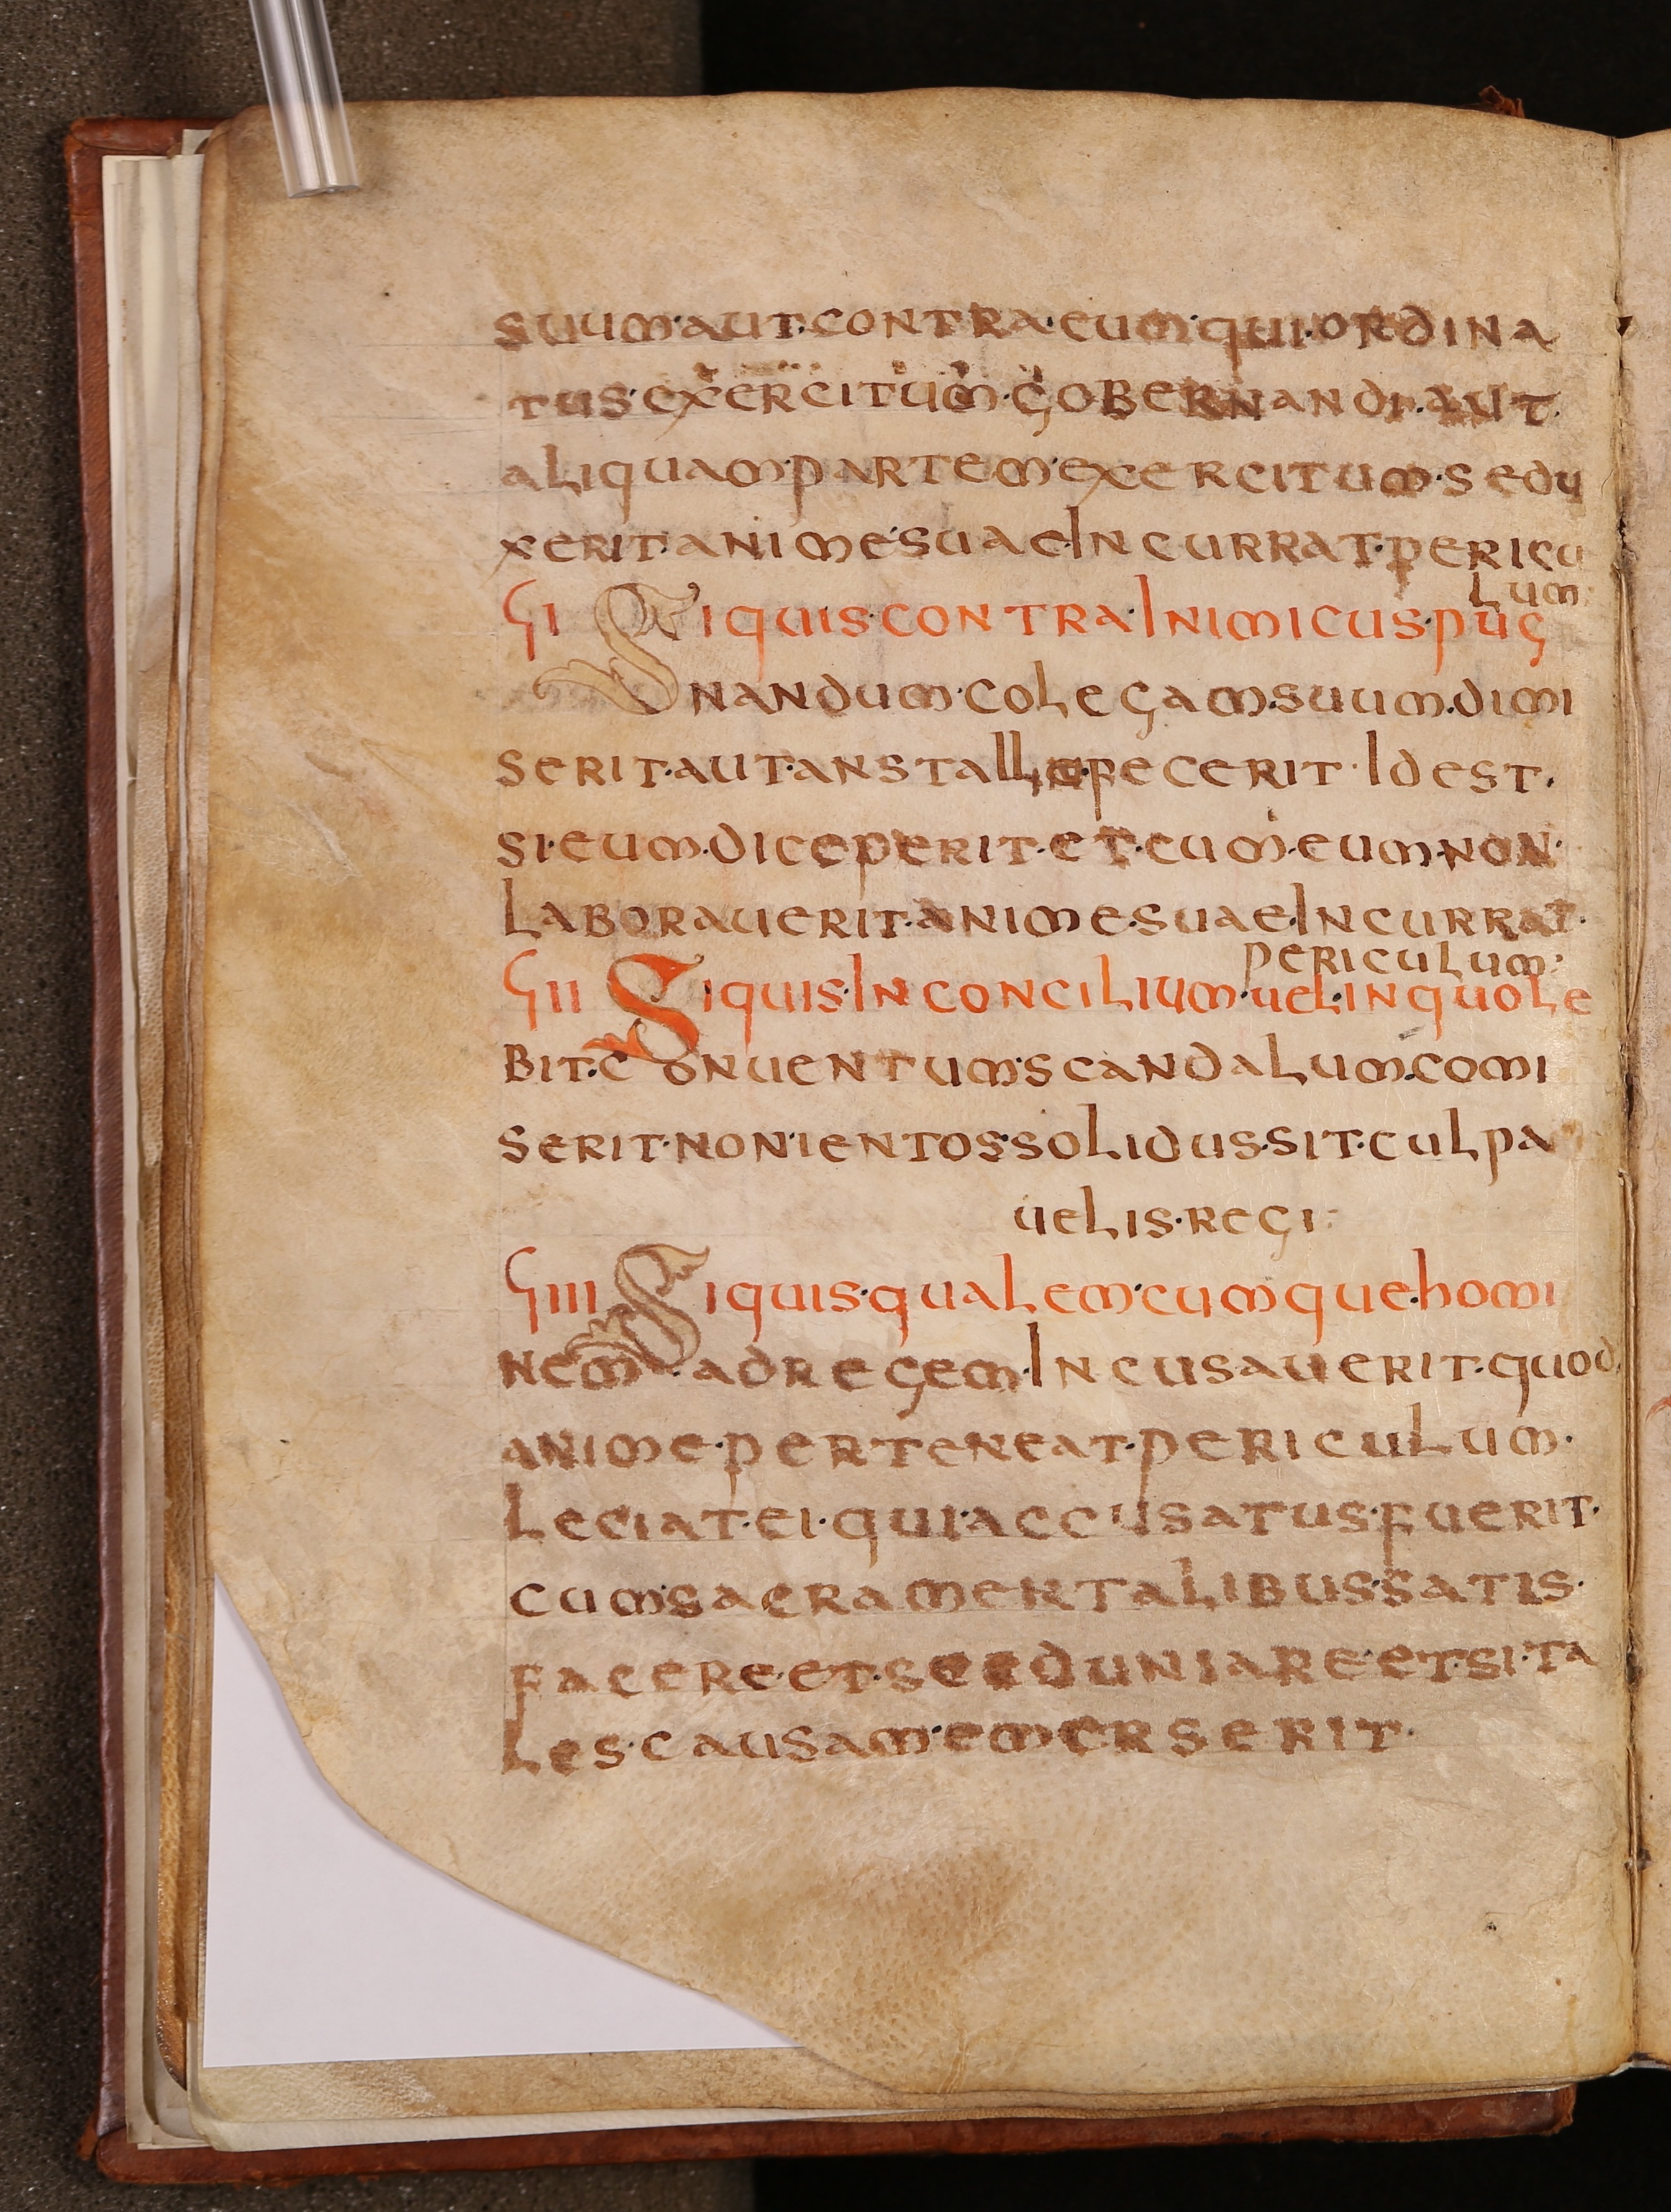 suum·aut·contra·eum·qui·ordina
tus·exercitum·gobernandi·aut·
aliquam·partem·exercitum·sedu
xerit·anime·suae·Incurrat·pericu
lum·
ϛI Siquis·contra·Inimicus·pug
nandum·colegam·suum·dimi
serit·aut·anstallin·fecerit·Idest·
si·eum·diceperit·et·cum·eum·non·
laborauerit·anime·suae·Incurrat·
periculum·
ϛII Siquis·In concilium·uel·in quole
bit·conuentum·scandalum·comi
serit·nonientos·solidus·sit·culpa
uelis·regi·
ϛIII Siquis·qualem·cumque·homi
nem·ad regem·Incusauerit·quod
anime·perteneat·periculum·
leciat·ei·qui·accusatus·fuerit·
cum·sacramentalibus·satis·
facere·et·se eduniare·et·si·ta
les·causam·emerserit·